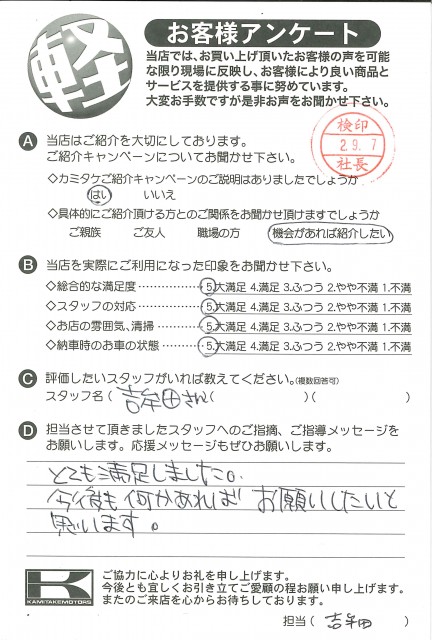 軽
お客様アンケート
当店では、お買い上げ頂いたお客様の声を可能
な限り現場に反映し、お客様により良い商品と
サービスを提供する事に努めています。
大変お手数ですが是非お声をお聞かせ下さい。
検印
29.7
社長
A 当店はご紹介を大切にしております。
ご紹介キャンペーンについてお聞かせ下さい。
◇カミタケご紹介キャンペーンのご説明はありましたでしょうか
はい いいえ
◇具体的にご紹介頂ける方とのご関係をお聞かせ頂けますでしょうか
ご親族 ご友人 職場の方 機会があれば紹介したい
B 当店を実際にご利用になった印象をお聞かせ下さい。
◇総合的な満足度……………5.大満足 4.満足 3.ふつう 2.やや不満 1.不満
◇スタッフの対応……………5.大満足 4.満足 3.ふつう 2.やや不満 1.不満
◇お店の雰囲気、清掃………5.大満足 4.満足 3.ふつう 2.やや不満 1.不満
◇納車時のお車の状態………5.大満足 4.満足 3.ふつう 2.やや不満 1.不満
C 評価したいスタッフがいれば教えてください。(複数回答可)
スタッフ名( 吉牟田さん )( )( )
D 担当させて頂きましたスタッフへのご指摘、ご指導メッセージを
お願いします。応援メッセージもぜひお願いします。
とても満足しました。
今後も何かあれば お願いしたいと
思います。
K
KAMITAKEMOTORS
ご協力に心よりお礼を申し上げます。
今後とも宜しくお引き立てご愛顧の程お願い申し上げます。
またのご来店を心からお待ちしております。
担当( 吉牟田 )